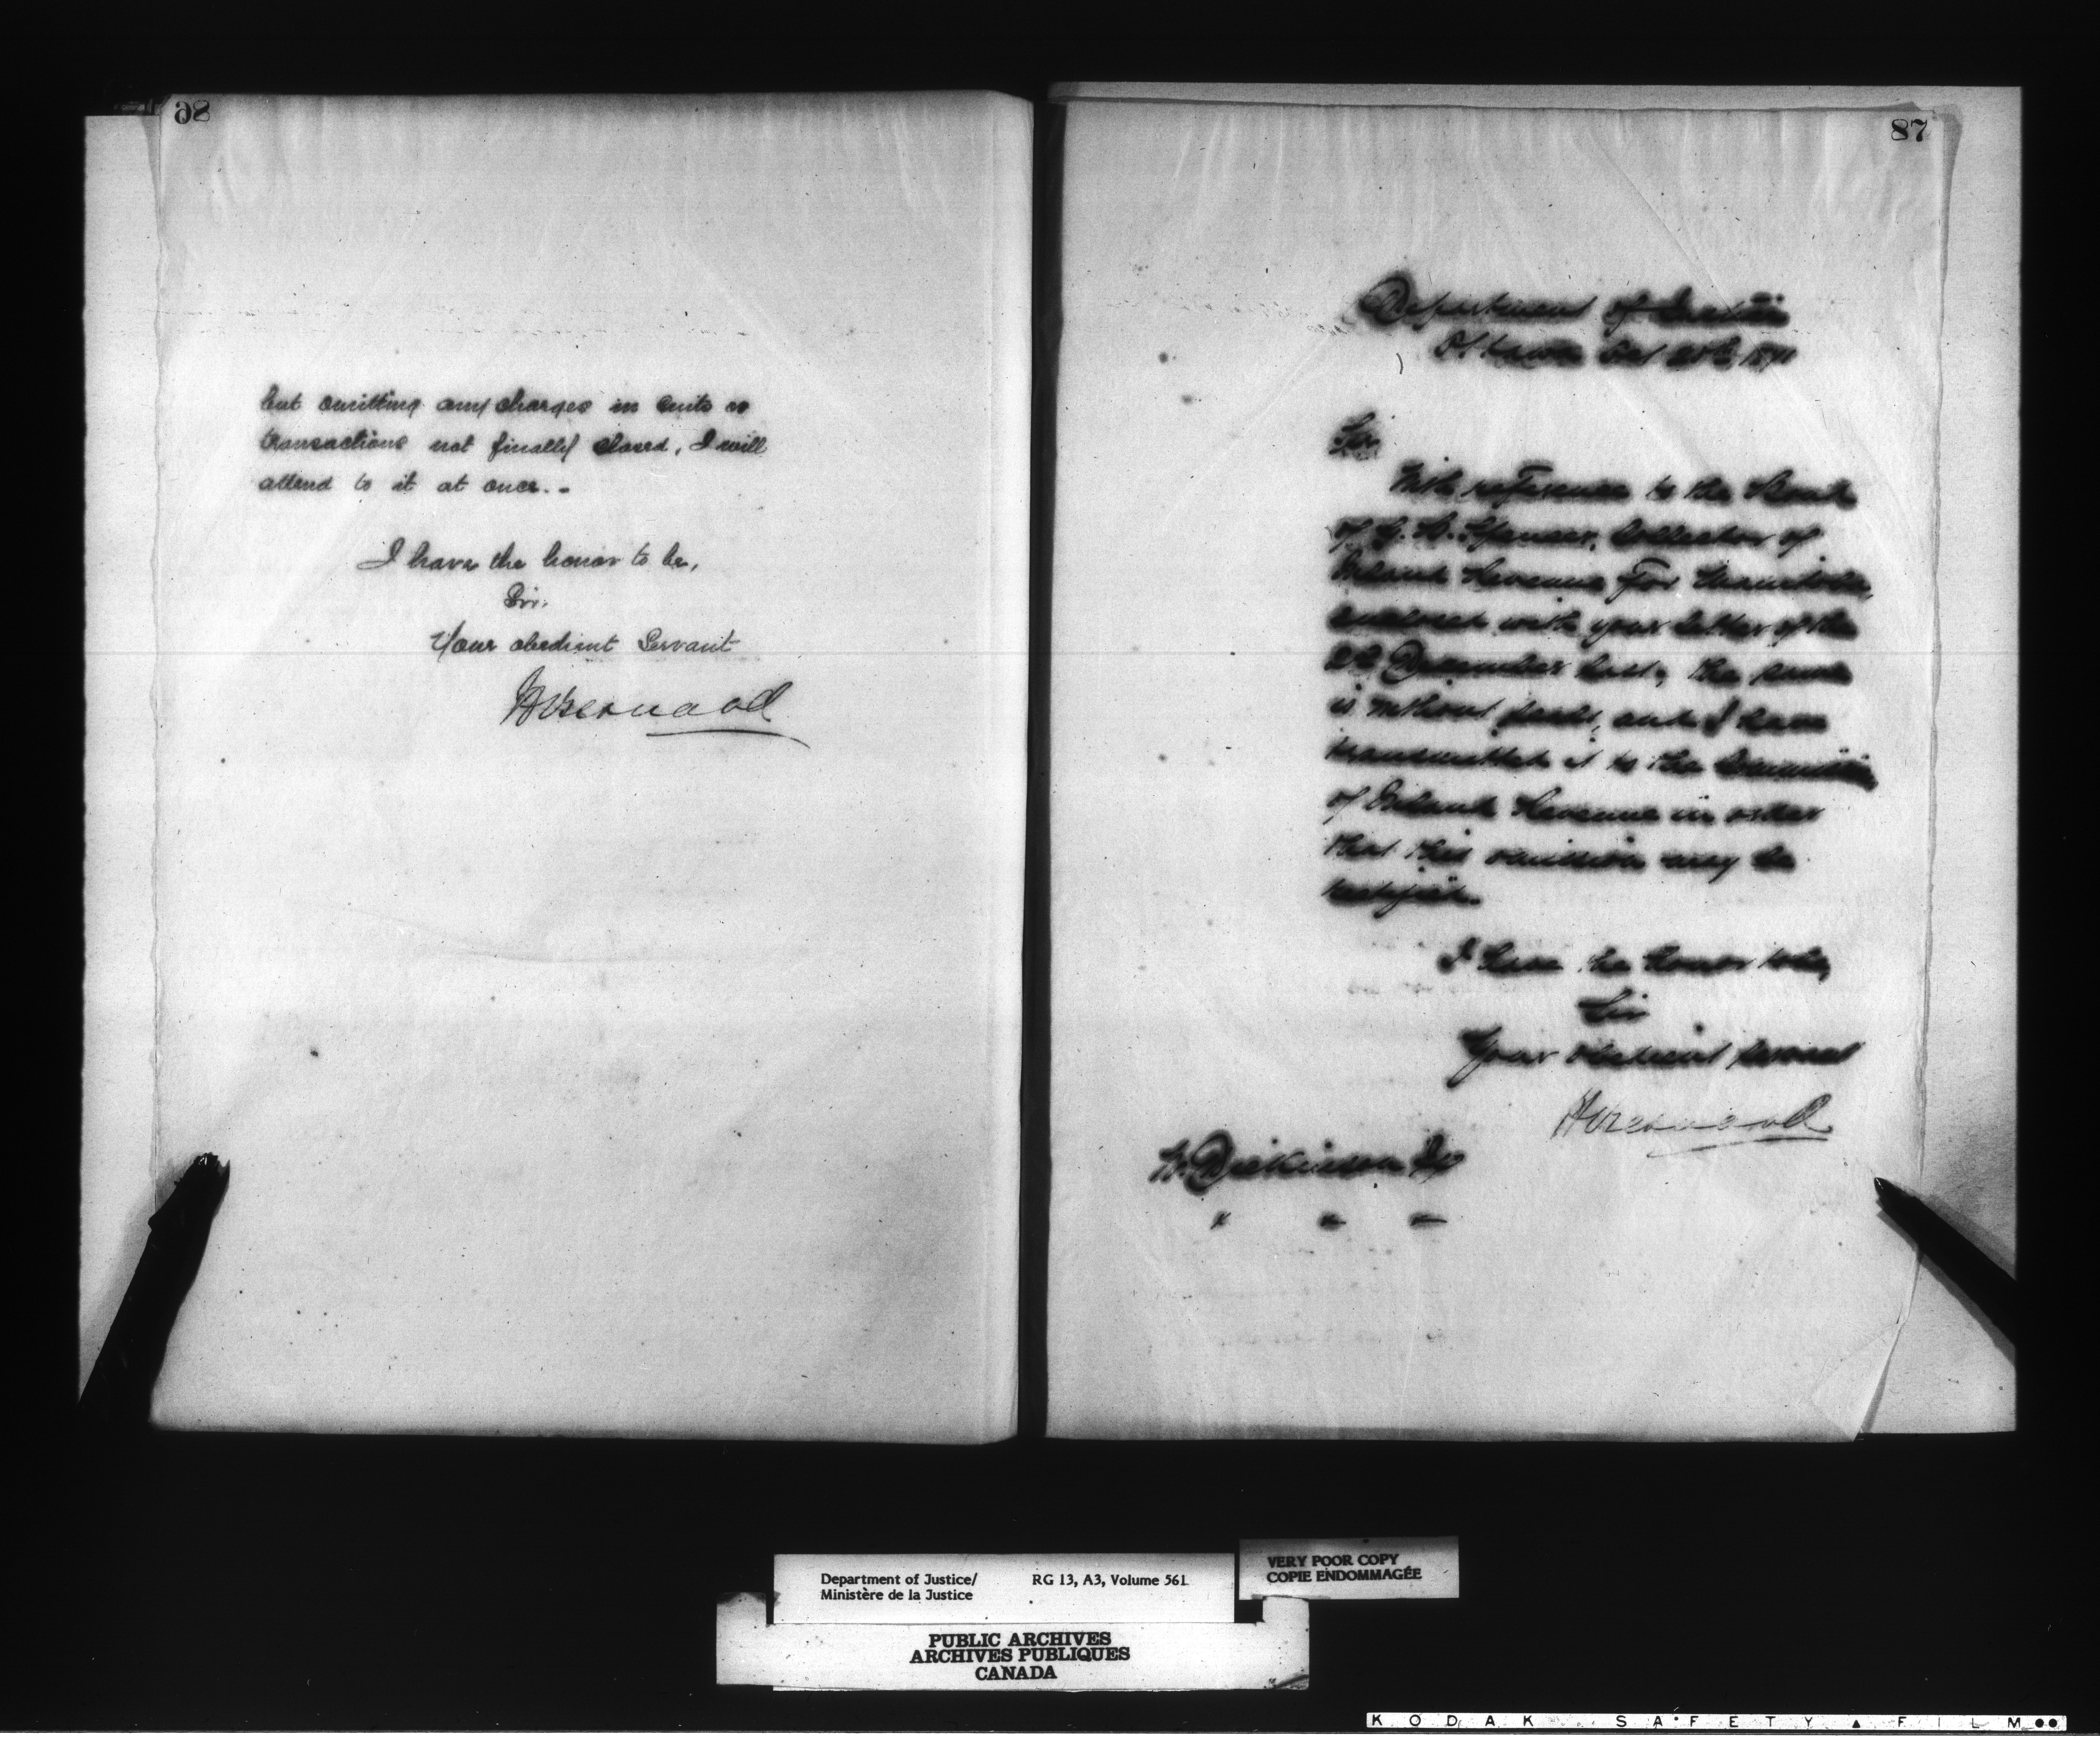 86
but omitting any charges in suits or
transactions not finally closed, I will
attend to it at once. -
I have the honor to be,
Sir.
Your obedient Servant
HBernard
87
Department of Justice
Ottawa 1871
Sir
With reference to the Bond
of G. B. Spencer, Collector of
Inland Revenue for Manitoba,
enclosed with your letter of the
December last, the same
is without seals, and I have
transmitted it to the
of Inland Revenue in order
that this omission may be
rectified.
I have the honor to be,
Sir
Your obedient servant
HBernard
H. Dickinson Esq
" " "
Department of Justice/ RG 13, A3, Volume 561
Ministère de la Justice
VERY POOR COPY
COPIE ENDOMMAGÉE
PUBLIC ARCHIVES
ARCHIVES PUBLIQUES
CANADA
KODAK SAFETY FILM